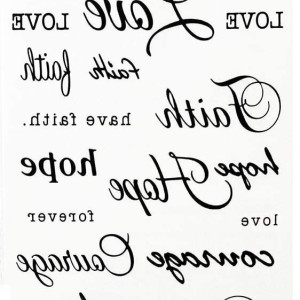 LOVE Love LOVE
faith faith
Faith
have faith.
hope Hope hope
love forever
courage Courage